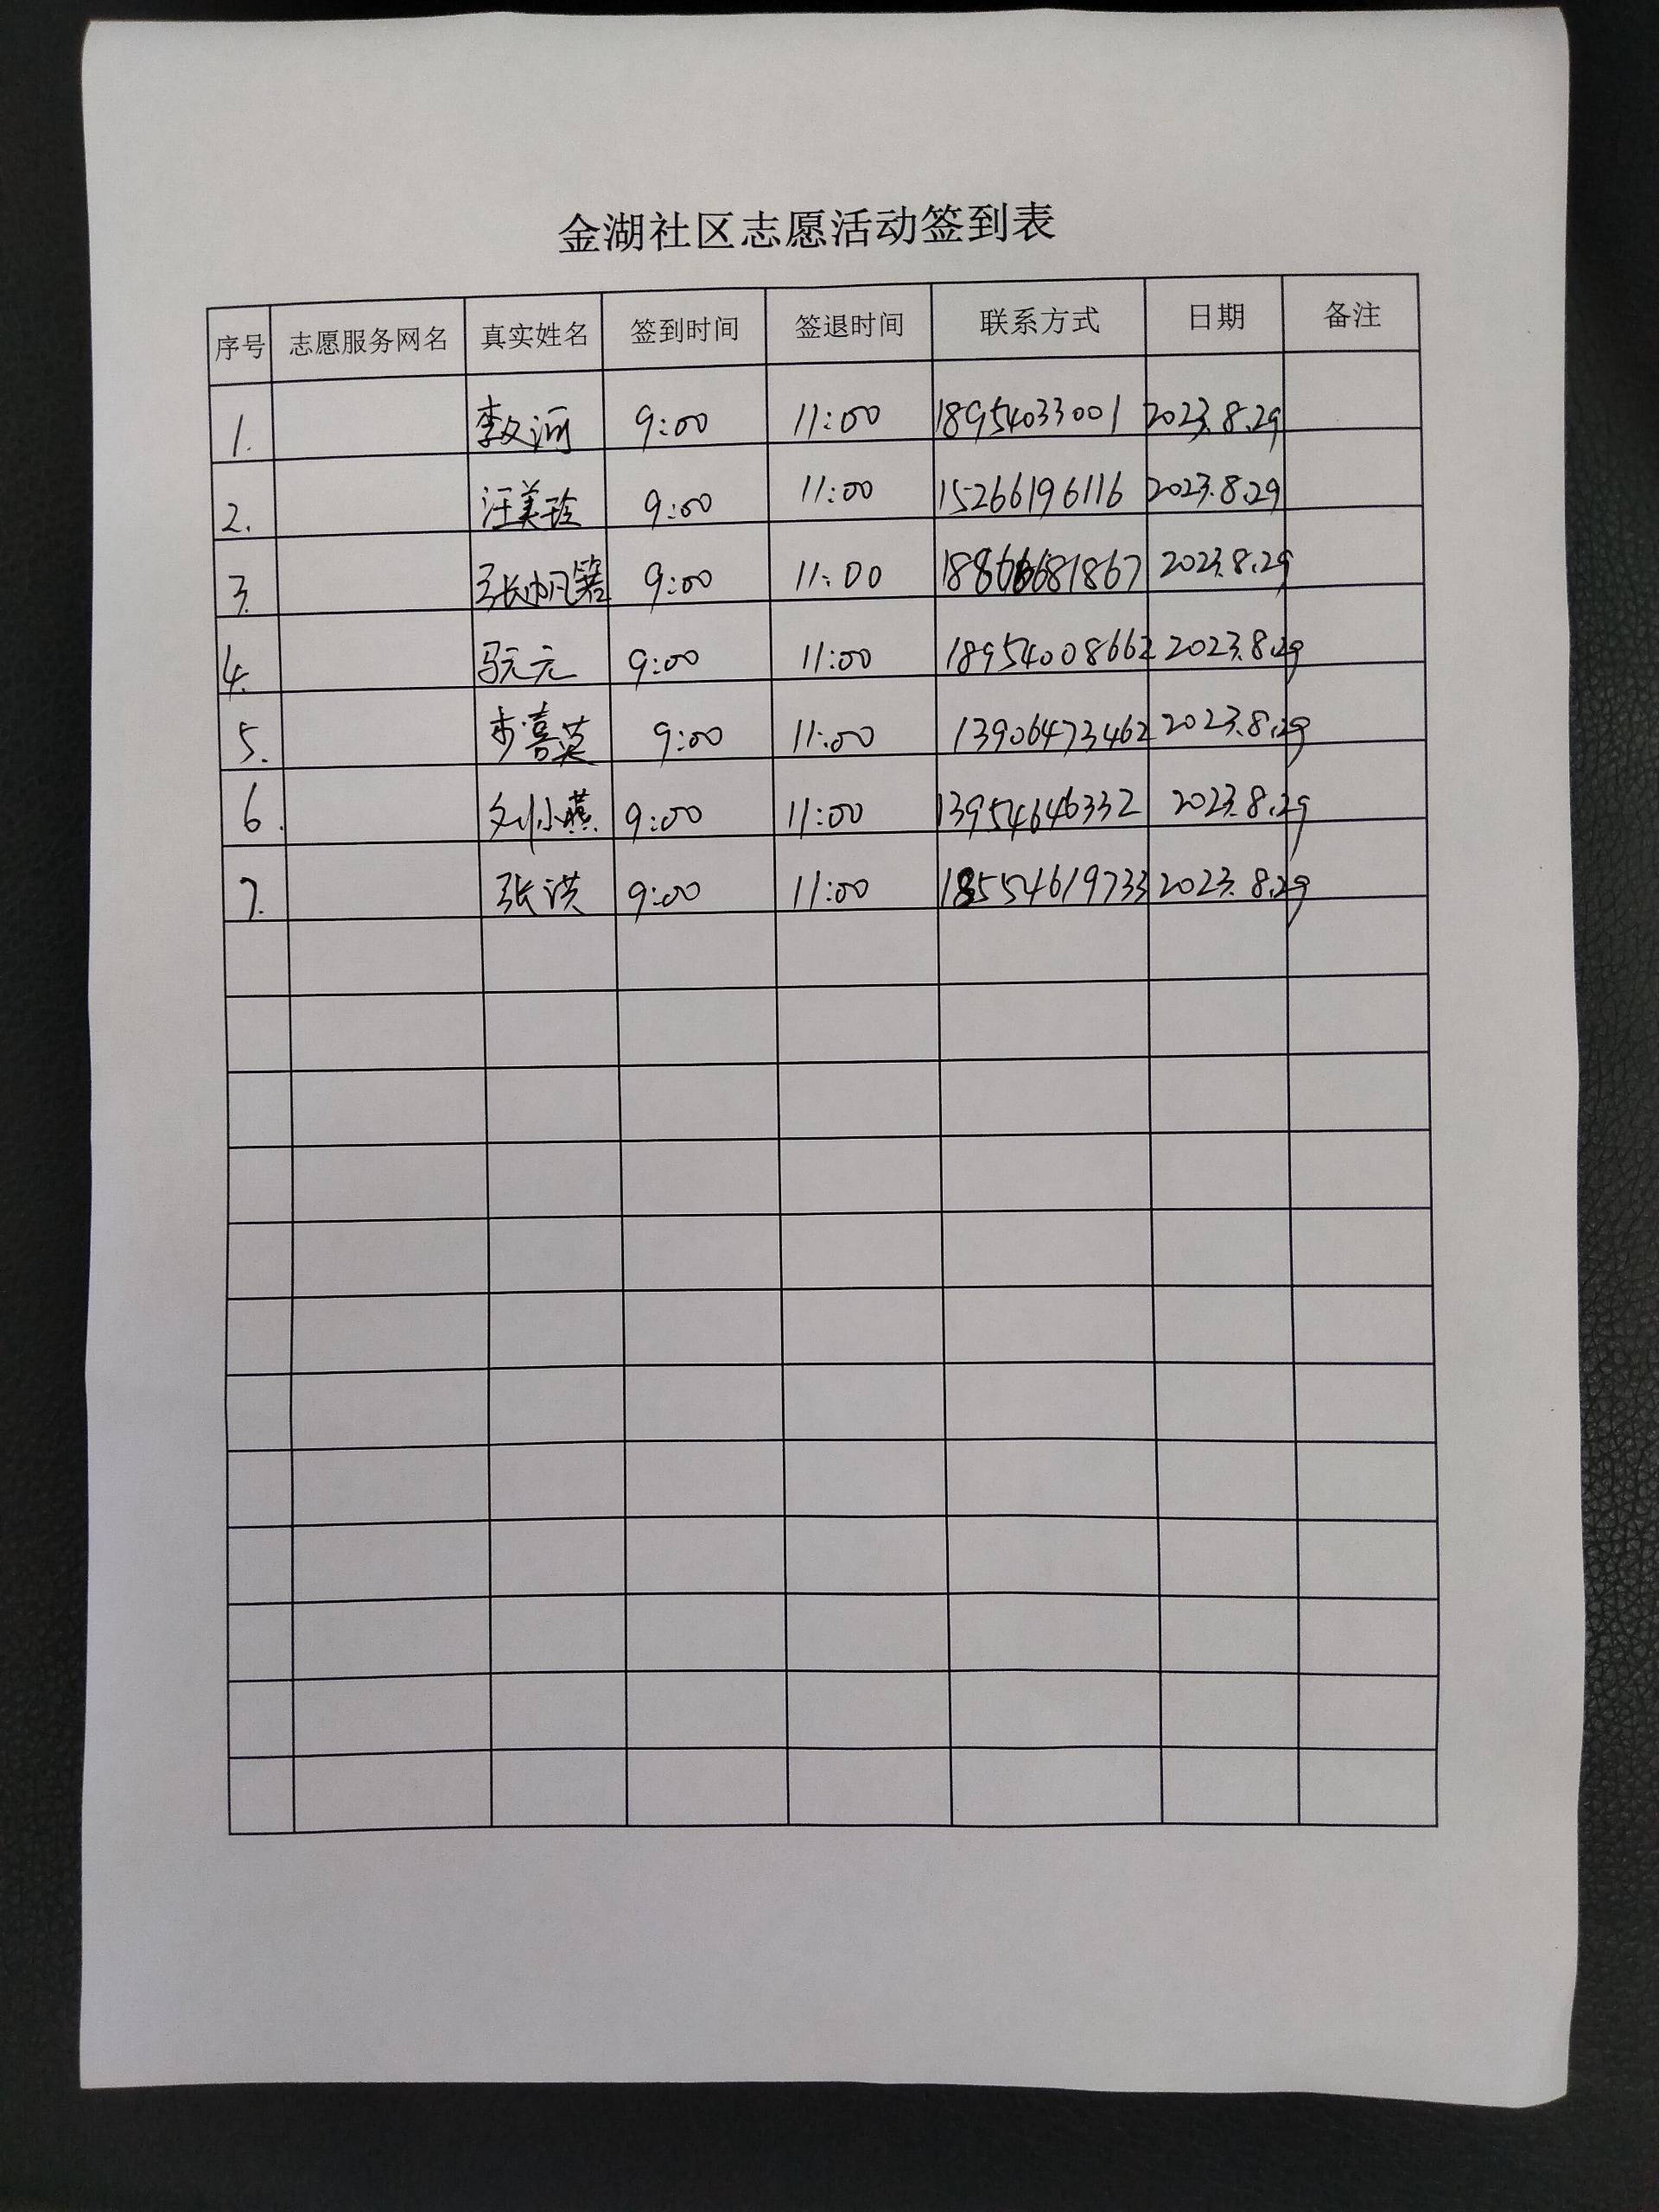 金湖社区志愿活动签到表
序号 志愿服务网名 真实姓名 签到时间 签退时间 联系方式 日期 备注
1. 李文河 9:00 11:00 18954033001 2023.8.29
2. 汪美玲 9:00 11:00 15266196116 2023.8.29
3. 张帆 9:00 11:00 18866681867 2023.8.29
4. 元 9:00 11:00 18954008662 2023.8.29
5. 步喜英 9:00 11:00 13906473462 2023.8.29
6. 刘小燕 9:00 11:00 13954646332 2023.8.29
7. 张洪 9:00 11:00 18554619733 2023.8.29